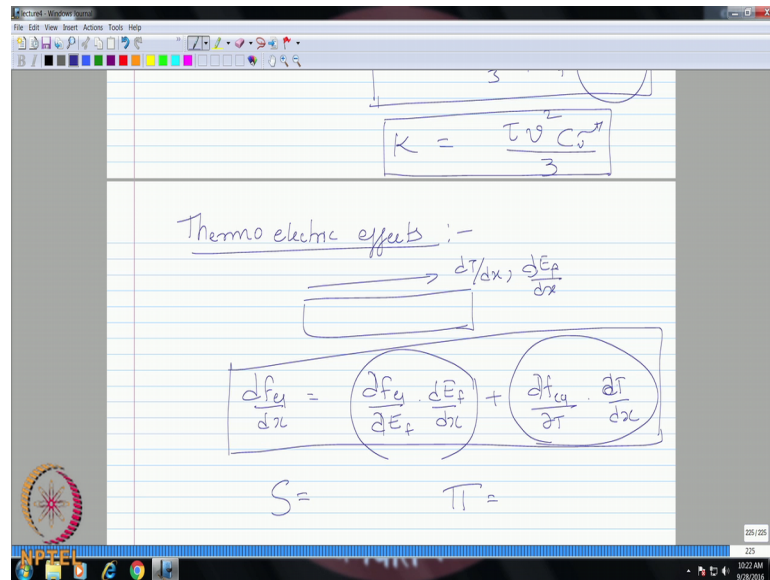 lecture4 - Windows Journal
File Edit View Insert Actions Tools Help
3
K = τ v² Cv / 3
Thermo electric effects :-
dT/dx, dEf/dx
dfeq/dx = ∂feq/∂Ef · dEf/dx + ∂feq/∂T · ∂T/dx
S= Π=
225/225
225
NPTEL
10:22 AM
9/28/2016